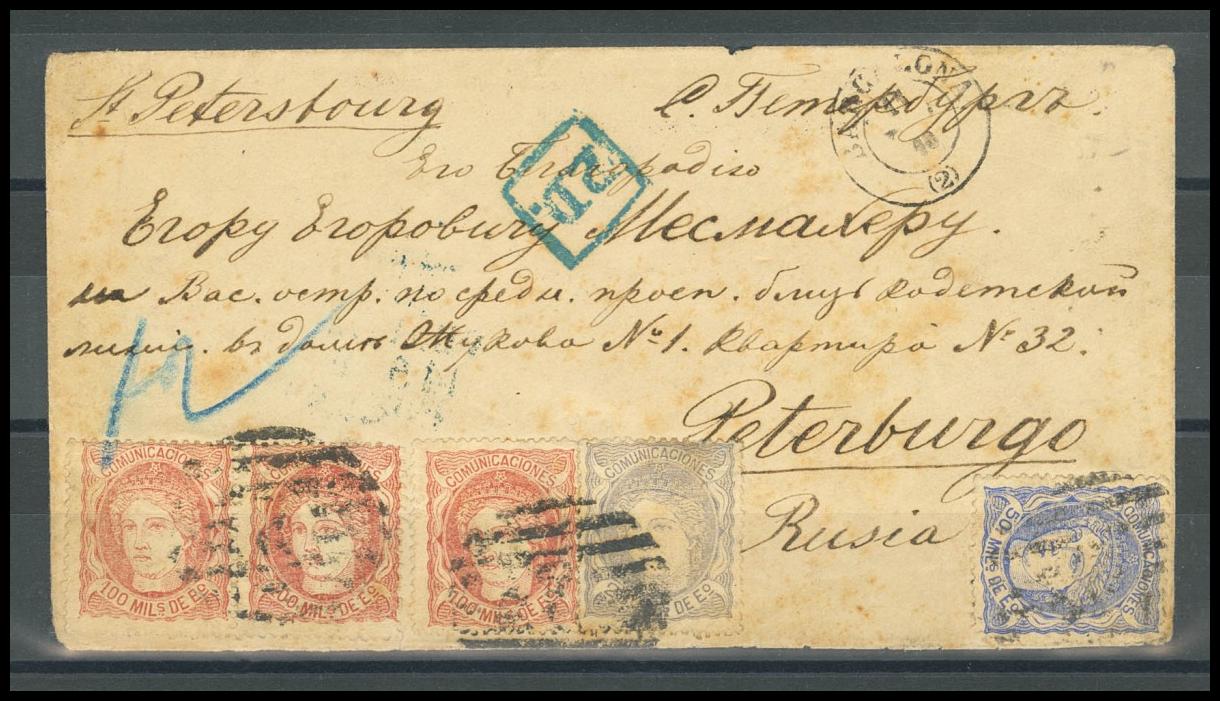 St Petersbourg
С. Петербургъ.
BARCELONA
(2)
P.D.
Его Благородію
Егору Егоровичу Месмахеру.
на Вас. остр. по средн. просп. близъ кадетской
линіи. въ домѣ Жукова № 1. Квартира № 32.
Peterburgo
Rusia
COMUNICACIONES
100 MILS DE Eo
COMUNICACIONES
100 MILS DE Eo
COMUNICACIONES
100 MILS DE Eo
COMUNICACIONES
DE Eo
COMUNICACIONES
50 MILS DE Eo